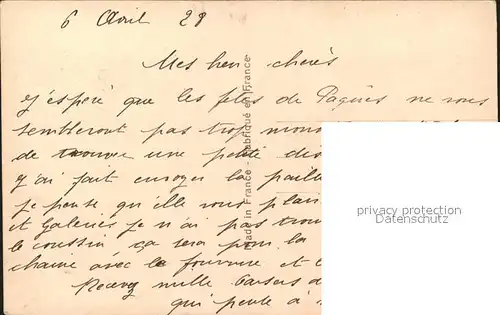 6 Avril 28
Mes bien chères
J'espère que les fêtes de Pâques ne vous
sembleront pas trop mono
de trouver une petite dis
J'ai fait envoyer la paille
je pense qu'elle vous plair
et Galeries je n'ai pas trou
le coussin ça sera pour la
chaise avec le fourrure et
Recevez mille baisers d
qui pense à
Made in France - Fabriqué en France
privacy protection
Datenschutz